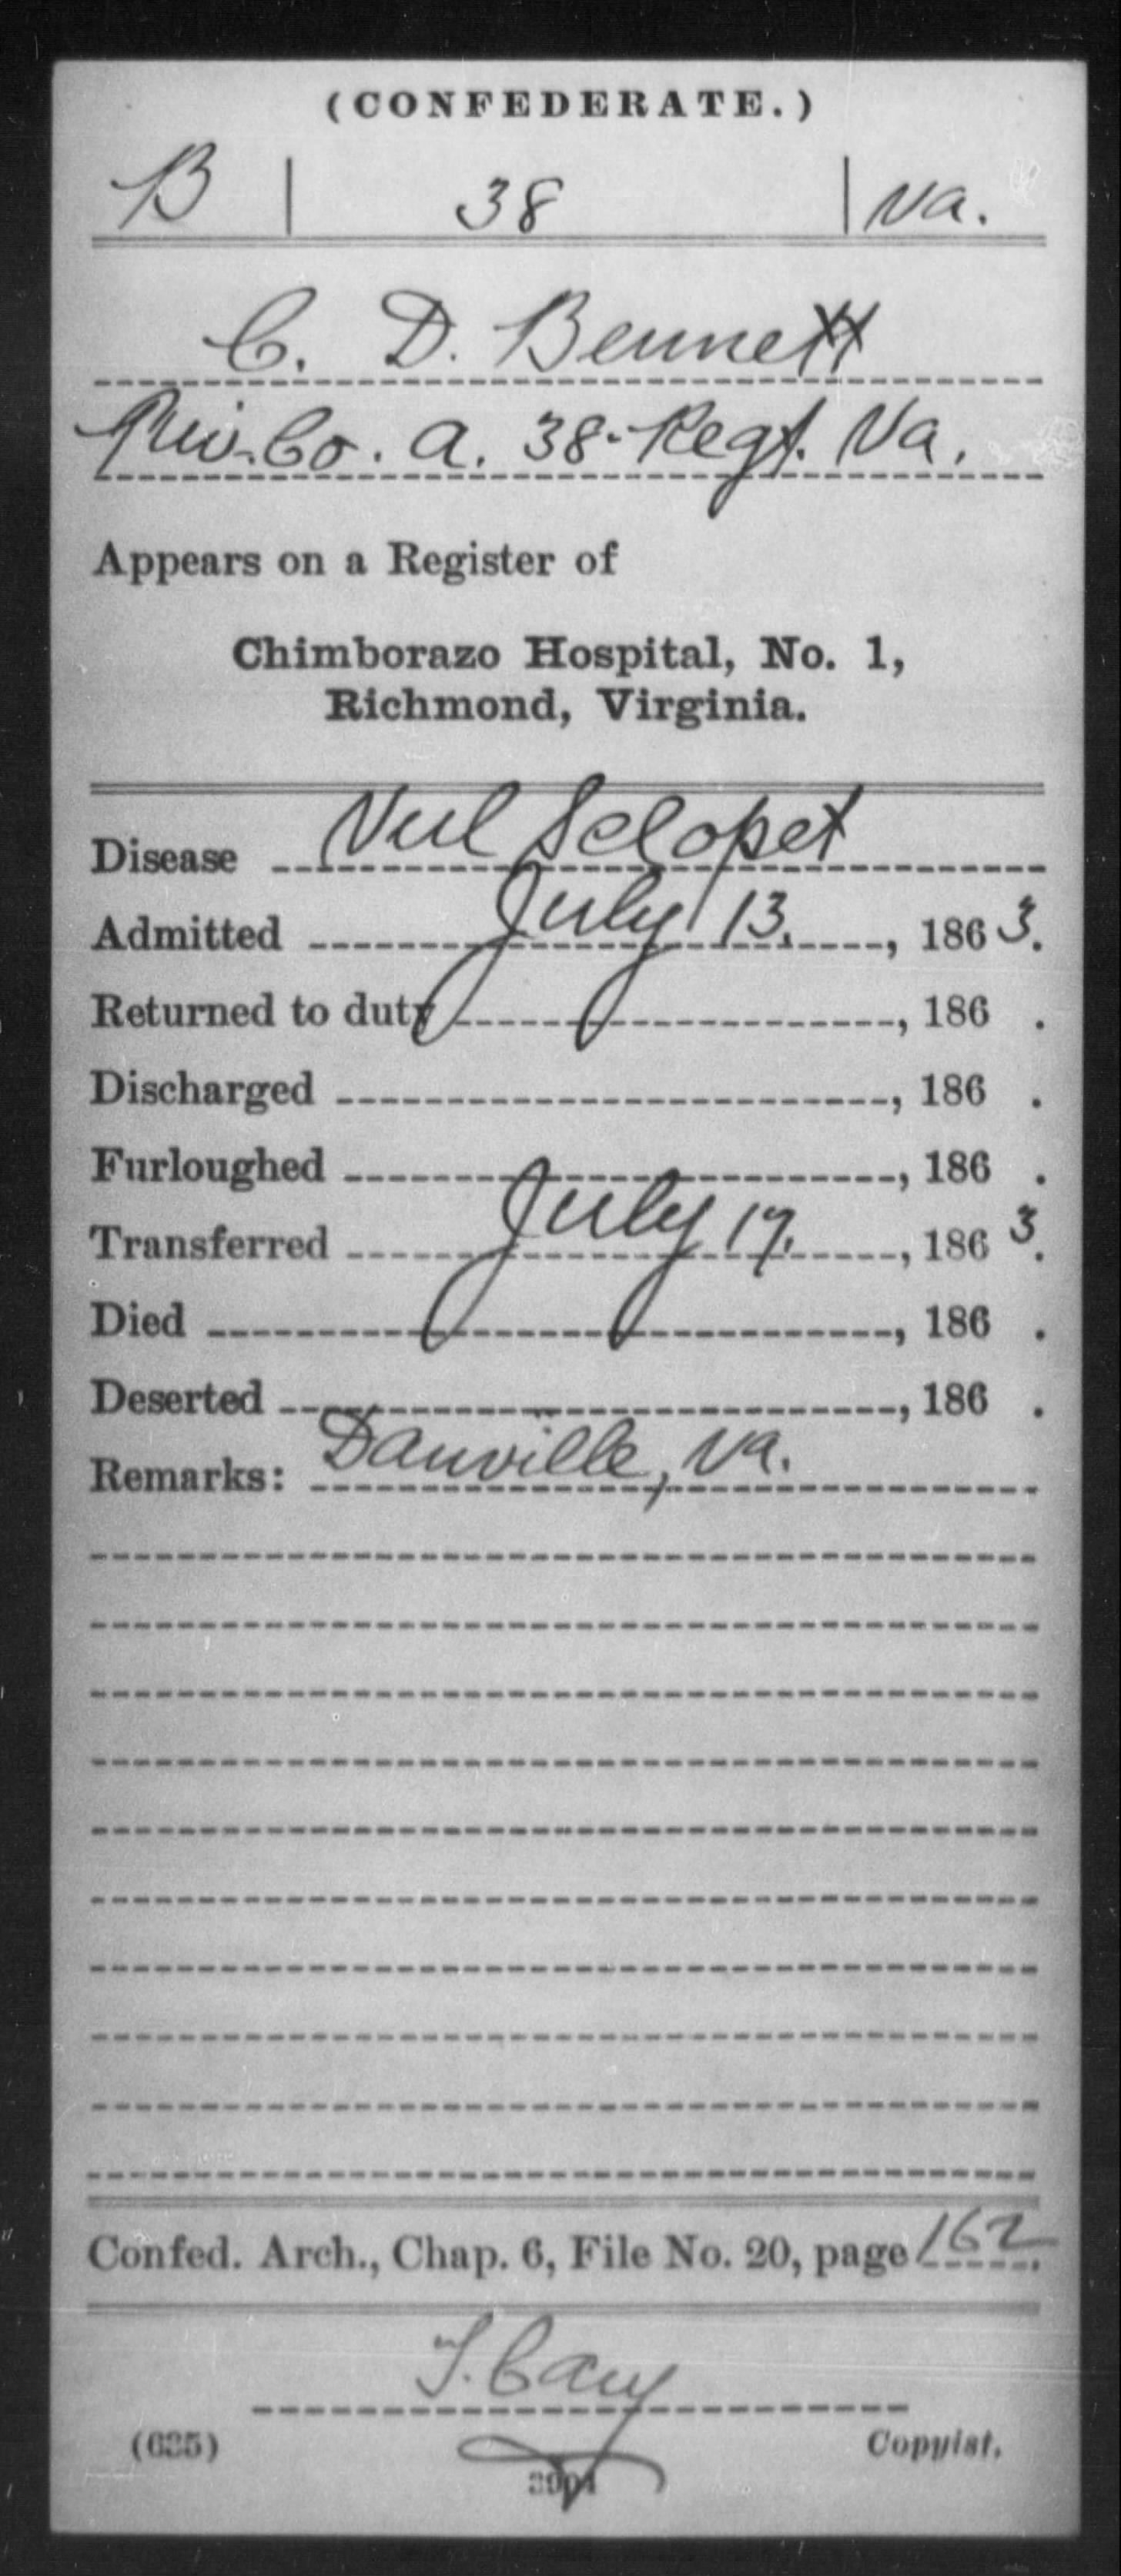 (CONFEDERATE.)
B | 38 | Va.
C. D. Bennett
Priv. Co. A. 38 Regt. Va.
Appears on a Register of
Chimborazo Hospital, No. 1,
Richmond, Virginia.
Disease Vul Sclopet
Admitted July 13, 1863.
Returned to duty , 186 .
Discharged , 186 .
Furloughed , 186 .
Transferred July 17, 1863.
Died , 186 .
Deserted , 186 .
Remarks: Danville, Va.
Confed. Arch., Chap. 6, File No. 20, page 162.
(635)
Copyist.